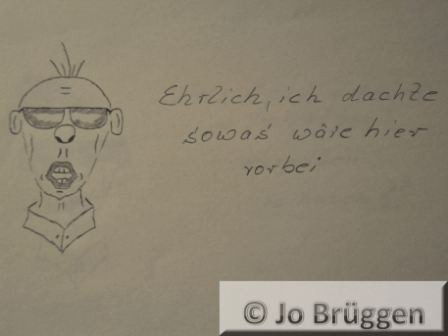 Ehrlich, ich dachte
sowas wäre hier
vorbei
© Jo Brüggen